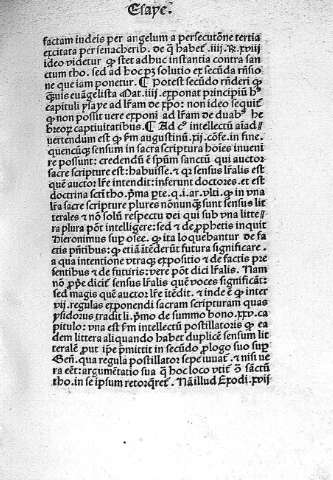 Esaye.
factam iudeis per angelum a persecutõne tertia
excitata per senacherib. de q̃ habet᷑ .iiii. R̃. xviii
ideo videtur ꝙ stet adhuc instantia contra san
ctum tho. sed ad hoc pꝫ solutio ex secũda rñsio
ne que iam ponetur. ¶ Potest secũdo rñderi ꝙ
quãuis euãgelista Mat. iiii. exponat principiũ hꝰ
capituli ysaye ad lr̃am de xp̃o: non ideo sequit᷑
ꝙ non possit vere exponi ad lr̃am de duabꝰ he
breoꝝ captiuitatibus. ¶ Ad cꝰ intellectũ aĩad
uertendum est ꝙ ẜm augustinũ .xii. cõfe. in fine.
quencũqꝫ sensum in sacra scriptura hoĩes inueni
re possunt: credendũ ẽ sp̃um sanctũ qui auctor
sacre scripture est: habuisse. ⁊ ꝙ sensus lr̃alis est
quẽ auctor lr̃e intendit: inferunt doctores. et est
doctrina scti tho. p̃ma p̃te. q. i. ar. vlti. ꝙ in vna
lr̃a sacre scripture plures nõnunqꝫ sunt sensus lit
terales ⁊ nõ solũ respectu dei qui sub vna litte
ra plura põt intelligere: sed ⁊ de ꝓphetis inquit
Hieronimus sup osee. ꝙ ita loquebantur de fa
ctis pñtibus: ꝙ etiã itẽderũt futura significare.
a qua intentione vtraqꝫ expositio ⁊ de factis pre
sentibus ⁊ de futuris: vere põt dici lr̃alis. Nam
nõ ꝓp̃e dicit᷑ sensus lr̃alis quẽ voces significãt:
sed magis quẽ auctor lr̃e itẽdit. ⁊ inde ẽ ꝙ inter
.vii. regulas exponendi sacram scripturam quas
ysidorus tradit li. p̃mo de summo bono. xxv. ca
pitulo: vna est ẜm intellectum postillatoris ꝙ ea
dem littera aliquando habet duplicẽ sensum lit
teralẽ ꝓut ip̃e p̃mittit in secũdo ꝓlogo suo suꝑ
Geñ. qua regula postillator sepe iuuat᷑. ⁊ nisi ve
ra eẽt: argumẽtatio sua q̃ hoc loco vtit᷑ ꝯ̃ sãctũ
tho. in se ip̃sum retorq̃ret᷑. Nã illud Exodi .xvii